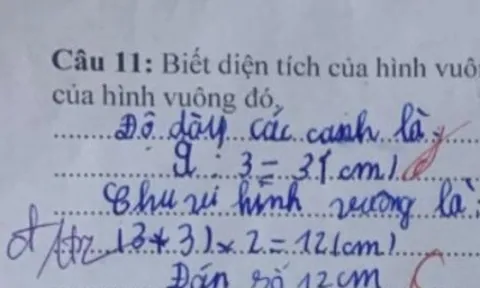 Câu 11: Biết diện tích của hình vuô
của hình vuông đó.
Độ dày các canh là:
9 : 3 = 3(cm)
Chu vi hình vuông là:
(3 + 3) x 2 = 12(cm)
Đáp số 12 cm